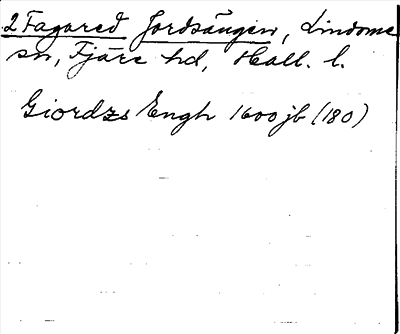 2 Fagared Jordsängen, Lindome
sn, Fjäre hd, Hall. l.
Giordzs Engh 1600 jb (180)